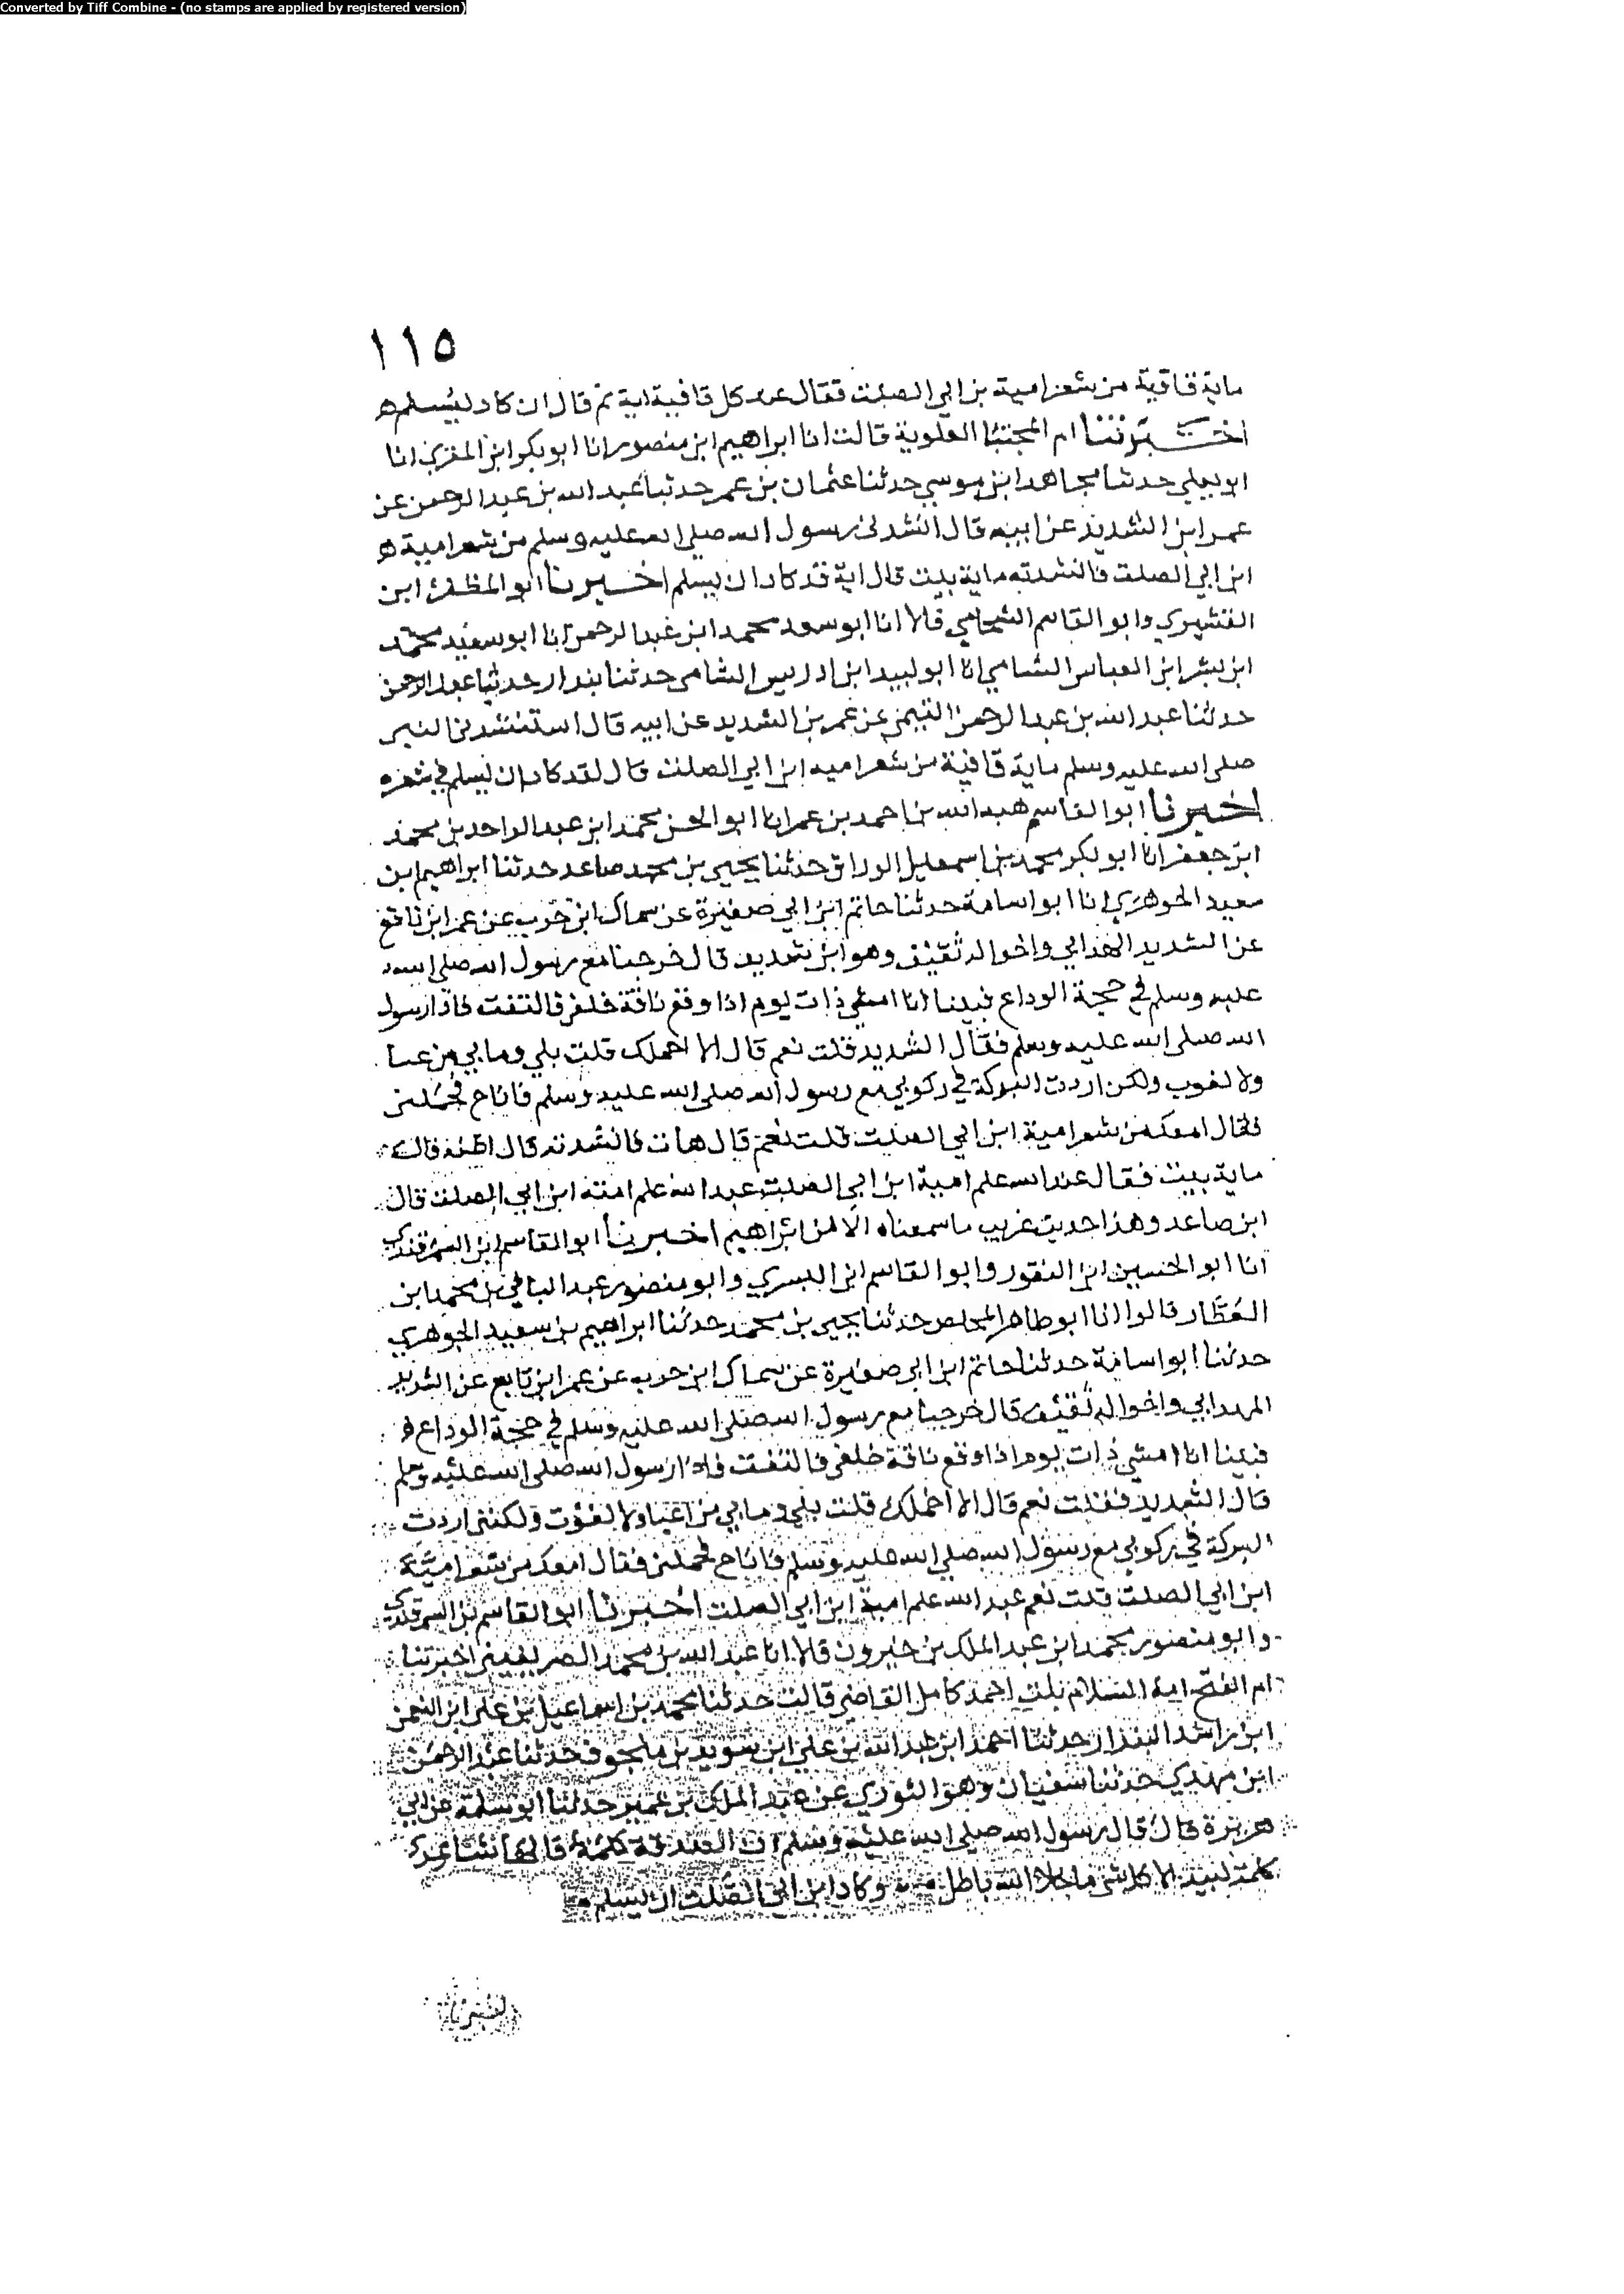 Converted by Tiff Combine - (no stamps are applied by registered version)
١١٥
ماية قافية من شعر امية بن ابي الصلت فقال عند كل قافية اية ثم قال ان كاد ليسلم ه
اخبرتنا ام المجتبا العلوية قالت انا ابراهيم ابن منصور انا ابو بكر ابن المقري انا
ابو يعلي حدثنا مجاهد ابن موسي حدثنا عثمان بن عمر حدثنا عبد الله بن عبد الرحمن عن
عمر ابن الشديد عن ابيه قال انشدني رسول الله صلي الله عليه وسلم من شعر امية ه
ابن ابي الصلت فانشدته ماية بيت قال اية قد كاد ان يسلم اخبرنا ابو المظفر ابن
القشيري وابو القاسم الشحامي قالا انا ابو سعد محمد ابن عبد الرحمن انا ابو سعيد محمد
ابن بشر ابن العباس الشامي انا ابو لبيد ابن ادريس الشامي حدثنا بندار حدثنا عبد الرحمن
حدثنا عبد الله بن عبد الرحمن التيمي عن عمر بن الشديد عن ابيه قال استنشدني النبي
صلي الله عليه وسلم ماية قافية من شعر اميه ابن ابي الصلت قال لقد كاد ان يسلم في شعره
اخبرنا ابو القاسم هبه الله بن احمد بن عمر انا ابو الحسن محمد ابن عبد الواحد بن محمد
ابن جعفر انا ابو بكر محمد بن اسمعيل الوراق حدثنا يحيي بن محمد صاعد حدثنا ابراهيم ابن
سعيد الجوهري انا ابو اسامة حدثنا حاتم ابن ابي صغيرة عن سماك ابن حرب عن عمر ابن نافع
عن الشديد الهمداني واخواله ثقيف وهو ابن شديد قال خرجنا مع رسول الله صلي الله
عليه وسلم في حجة الوداع فبينا انا امشي ذات يوم اذا وقع ناقة خلفي فالتفت فاذا رسول
الله صلي الله عليه وسلم فقال الشديد قلت نعم قال الا احملك قلت بلي وما بي من عيا
ولا لغوب ولكن اردت البركة في ركوبي مع رسول الله صلي الله عليه وسلم فاناخ فحملني
فقال امعك من شعر امية ابن ابي الصلت قلت نعم قال هات فانشدته قال اظنه قال
ماية بيت فقال عند الله علم امية ابن ابي الصلت عند الله علم امية ابن ابي الصلت قال
ابن صاعد وهذا حديث غريب ما سمعناه الا من ابراهيم اخبرنا ابو القاسم ابن السمرقندي
انا ابو الحسين ابن النقور وابو القاسم ابن البسري وابو منصور عبد الباقي بن محمد ابن
العطار قالوا انا ابو طاهر المخلص حدثنا يحيي بن محمد حدثنا ابراهيم بن سعيد الجوهري
حدثنا ابو اسامة حدثنا حاتم ابن ابي صغيرة عن سماك ابن حرب عن عمر ابن نافع عن الشديد
الهمداني واخواله ثقيف قال خرجنا مع رسول الله صلي الله عليه وسلم في حجة الوداع ه
فبينا انا امشي ذات يوم اذا وقع ناقة خلفي فالتفت فاذا رسول الله صلي الله عليه وسلم
قال الشديد فقلت نعم قال الا احملك قلت بلي وما بي من اعيا ولا لغوب ولكني اردت
البركة في ركوبي مع رسول الله صلي الله عليه وسلم فاناخ فحملني فقال امعك من شعر امية
ابن ابي الصلت قلت نعم عند الله علم امية ابن ابي الصلت اخبرنا ابو القاسم بن السمرقندي
وابو منصور محمد ابن عبد الملك بن خيرون قالا انا عبد الله بن محمد الصريفيني اخبرتنا
ام الفتح امة السلام بنت احمد كامل القاضي قالت حدثنا محمد بن اسماعيل بن علي ابن النعمن
ابن راشد البندار حدثنا احمد ابن عبد الله بن علي ابن سويد بن منجوف حدثنا عبد الرحمن
ابن مهدي حدثنا سفيان وهو الثوري عن عبد الملك بن عمير حدثنا ابو سلمة عن ابي
هريرة قال قال رسول الله صلي الله عليه وسلم ان اصدقة كلمة قالها شاعر
كلمة لبيد الا كل شي ما خلا الله باطل وكاد ابن ابي الصلت ان يسلم